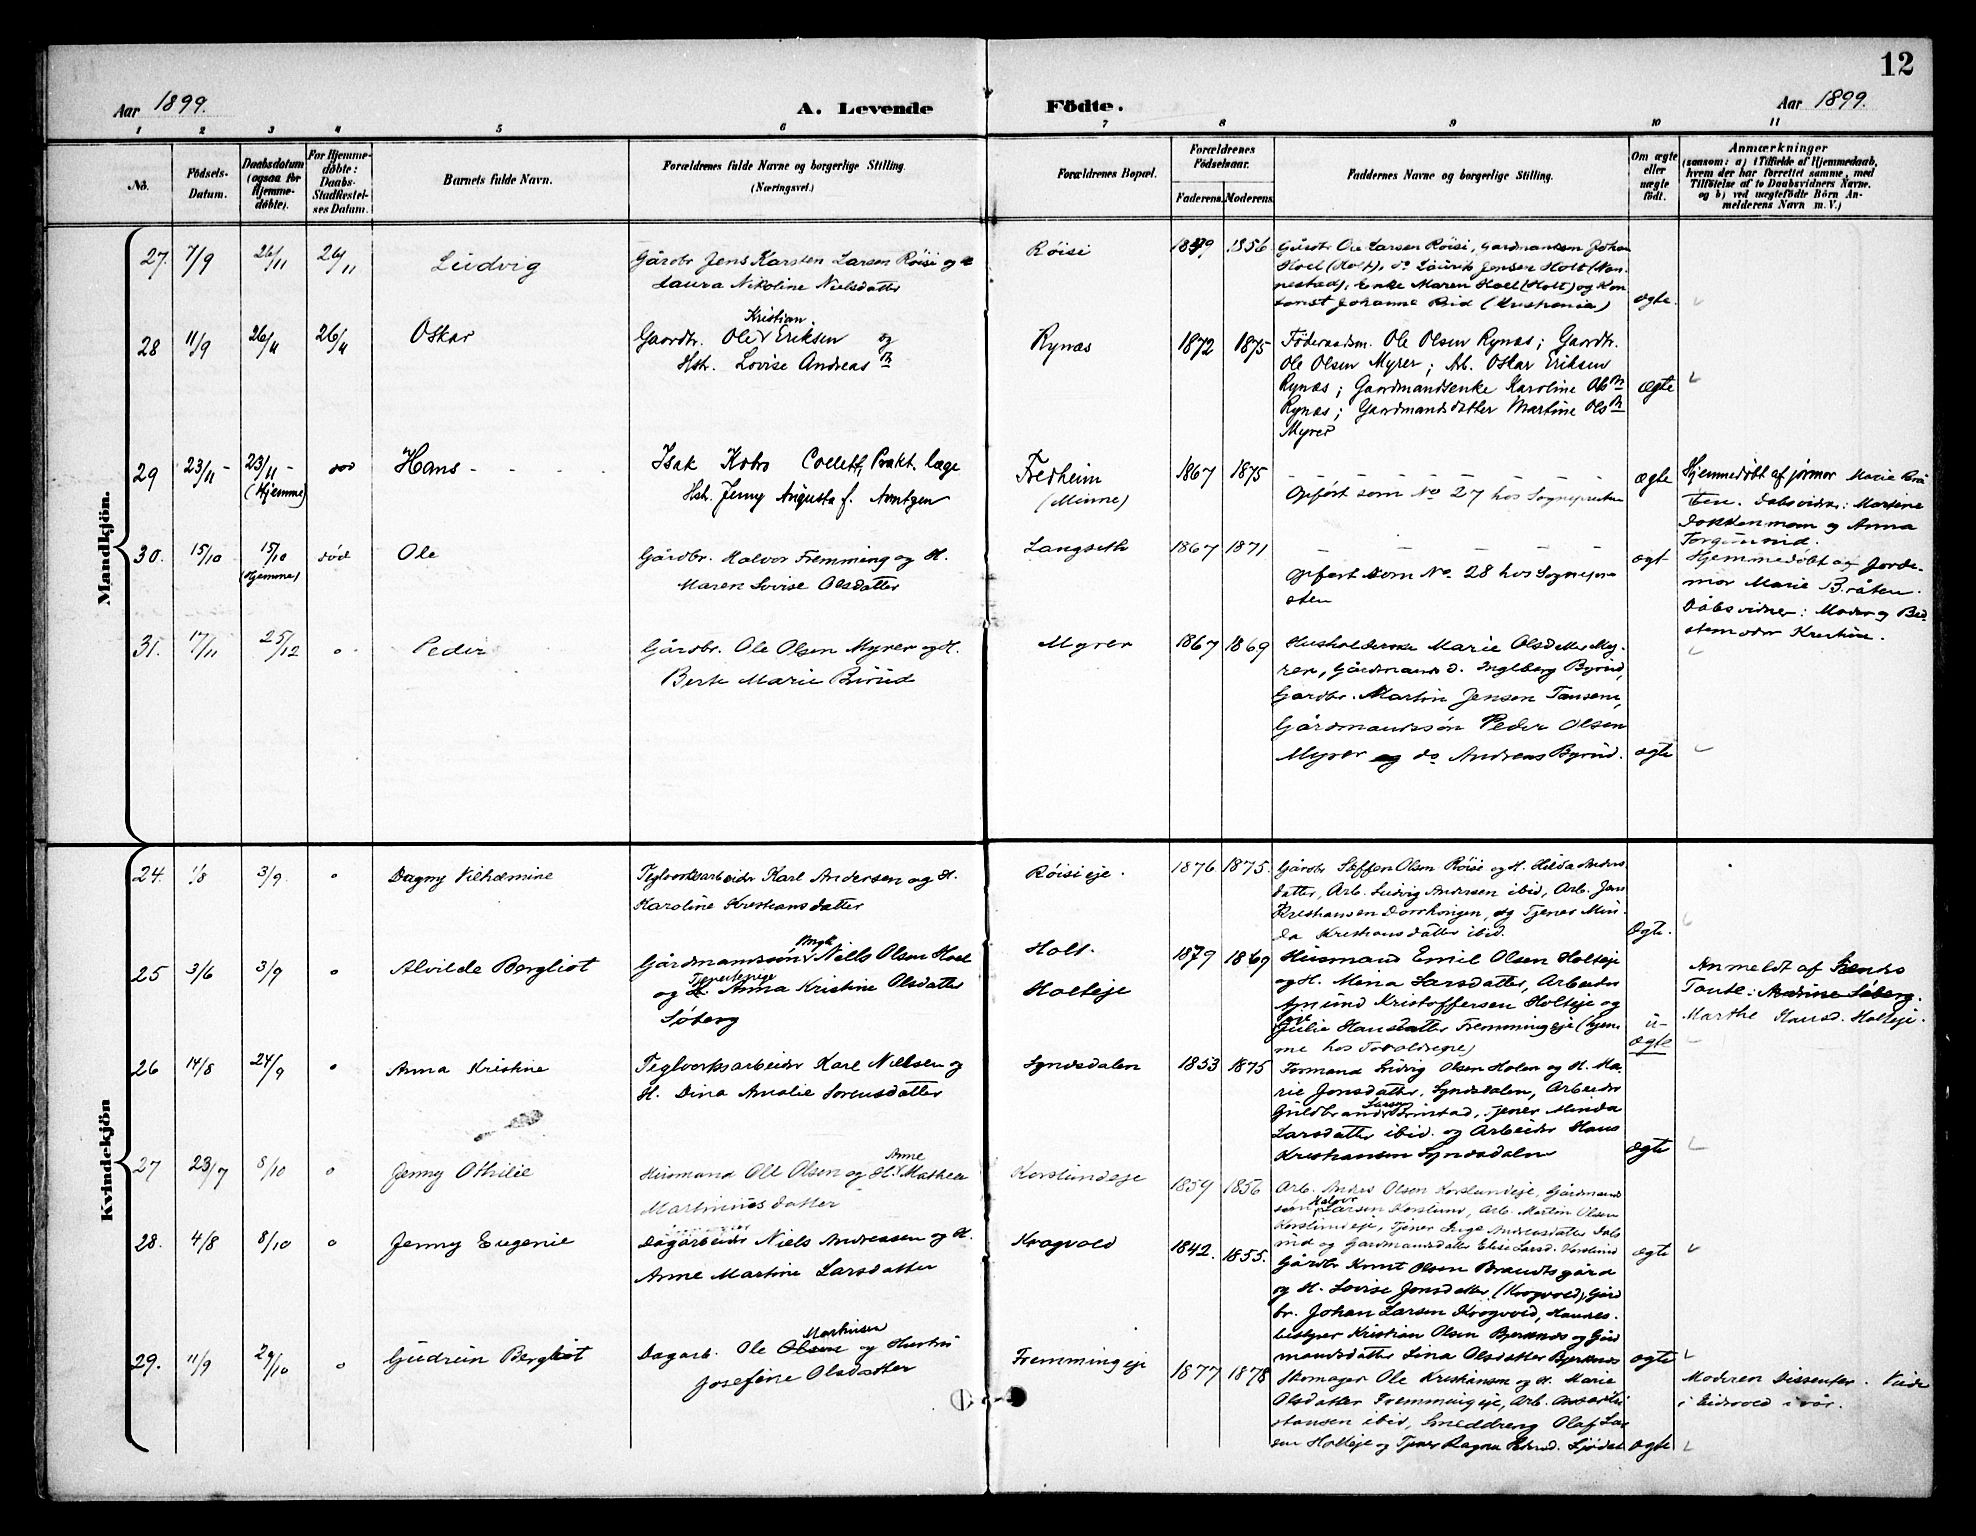 12
Aar 1899.
A. Levende
Födte.
Aar 1899.
1 2 3 4 5 6 7 8 9 10 11
No.
Födsels-
Datum.
Daabsdatum
(ogsaa for
Hjemme-
döbte).
For Hjemme-
døbte:
Daabs-
Stadfæstel-
ses Datum.
Barnets fulde Navn.
Forældrenes fulde Navne og borgerlige Stilling.
(Næringsvei.)
Forældrenes Bopæl.
Forældrenes
Födselsaar.
Faderens. Moderens.
Faddernes Navne og borgerlige Stilling.
Om ægte
eller
uægte
født.
Anmærkninger
(saasom: a) i Tilfælde af Hjemmedaab,
hvem der har forrettet samme, med
Tilføielse af to Daabsvidners Navne,
og b) ved uægtefødte Børn An-
melderens Navn m. V.)
Mandkjön.
27. 7/9 26/11 26/11 Ludvig
Gårdbr. Jens Karsten Larsen Røisi og
Laura Nikoline Nielsdatter
Røisi
1856
Gårdbr. Ole Larsen Røisi, Gardmandssøn Johan
Hoel (Holt), do Laurits Jensen Holt (Nan-
nestad), Enke Maren Hoel (Holt) og
Johanne (Kristiania)
ægte.
28 11/9 26/11 26/11 Oskar
Kristian
Gaardbr. Ole Eriksen og
Hstr. Lovise Andreas
Rynæs
1872 1875
Føderaadsm. Ole Olsen Rynæs; Gaardbr.
Ole Olsen Myrer; Arb. Oskar Eriksen
Rynæs; Gaardmandsenke Karoline
Rynæs; Gaardmandsdatter Martine Ols
Myrer
ægte
29 23/11 23/11 død Hans
(Hjemme)
Isak Kobro Collett, Prakt. læge
Hstr. Jenny Augusta f. Arntzen
Fredheim
(Minne)
1867 1875
Opført som No 27 hos Sognepresten
ægte
Hjemmedøbt af jormor Marie Brå-
ten. Dabsvidner: Martine
Dokkenmoen og Anna
30. 15/10 15/10 død Ole
(Hjemme)
Gårdbr. Halvor Fremming og H.
Maren Lovise Olsdatter
Langseth
1867 1871
Opført som No. 28 hos Sognepre-
sten
ægt
Hjemmedøbt af Jorde-
mor Marie Bråten.
Dåbsvidner: Moder og Bed-
stemoder Kristine.
31. 17/11 25/12 o Peder
Gårdbr. Ole Olsen Myrer og H.
Berte Marie Byrud
Myrer
1867 1869
Husholderske Marie Olsdatter My-
rer, Gårdmands d. Ingeborg Byrud,
Gardbr. Martin Jensen Tønsem,
Gårdmandssøn Peder Olsen
Myrer og do Andreas Byrud.
ægte
Kvindekjön
24. 1/8 3/9. o Dagny Vilhelmine
Teglverksarbeider Karl Andersen og H.
Karoline Kristiansdatter
Røisieje.
1876 1875.
Gårdbr. Steffen Olsen Røise og H. Hilda Anders
datter, Arb. Ludvig Andersen ibid, Arb. Jens
Kristiansen og Tjener Min-
da Kristiansdatter ibid.
Ægte.
25 3/6 3/9 o Alvilde Bergliot
Gårdmandssøn Niels Olsen Hoel
og H. Anna Kristine Olsdatter
Søberg
Holt.
Holteje
1879 1869
Husmand Emil Olsen Holteje
og H. Mina Larsdatter, Arbeider
Amund Kristoffersen Holteje og
Julie Hansdatter Fremmingeje (hjem-
me hos Forældrene)
u-
ægte
Anmeldt af
Tante: Andrine Søberg.
Marthe Hansd. Holteje.
26 14/8 24/9 o Anna Kristine
Teglverksarbeider Karl Nielsen og
H. Dina Amalie Sorensdatter
Syndsdalen
1853 1875
Formand Ludvig Olsen Holen og H. Ma-
rie Jonsdatter, Syndsdalen, Arbeider
Larsen
Guldbrand Grinstad, Tjener Minda
Larsdatter ibid. og Arbeider Hans
Kristiansen Syndsdalen
ægte
27 23/7 8/10 o Jenny Othilie
Anne
Husmand Ole Olsen og H. Mathea
Martinusdatter
Korslundeje
1859 1856
Arb. Anders Olsen Korslundeje, Gårdmands
Halvor
søn Larsen Korslund, Arb. Martin Olsen
Korslundeje, Tjener Inga Andreasdatter
og Gardmandsdatter Elise Larsd. Korslund
ægte
28. 4/8 8/10 o Jenny Eugenie
Dagarbeider Niels Andreasen og H.
Anne Martine Larsdatter
Krogvold
1842. 1855.
Gårdbr Knut Olsen Brandtsgård
og H. Lovise Jonsdatter (Krogvold), Gård
br. Johan Larsen Krogvold, Handels-
bestyrer Kristian Olsen Bjerknes og Gård
mandsdatter Lina Olsdatter Bjerknes
ægte
29. 11/9 29/10 o Gudrun Bergliot
Martinsen
Dagarb. Ole Olsen og Hustru
Josefine Olsdatter
Fremmingeje
1877 1878
Skomager Ole Kristiansen og H. Marie
Olsdatter Fremmingeje, Arb.
ibid, Smeddreng Olaf Lar-
sen Holteje og Tjener Ragna
ægte
Moderen dissenter. Viede
i Eidsvold i vår.